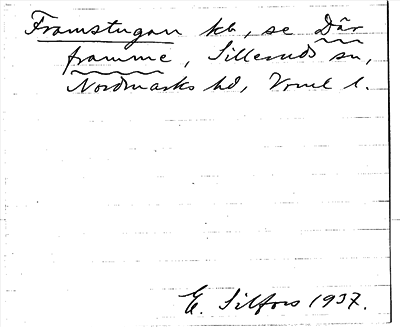 Framstugan kb, se Där
framme, Silleruds sn,
Nordmarks hd, Vrml l.
E. Silfors 1937.